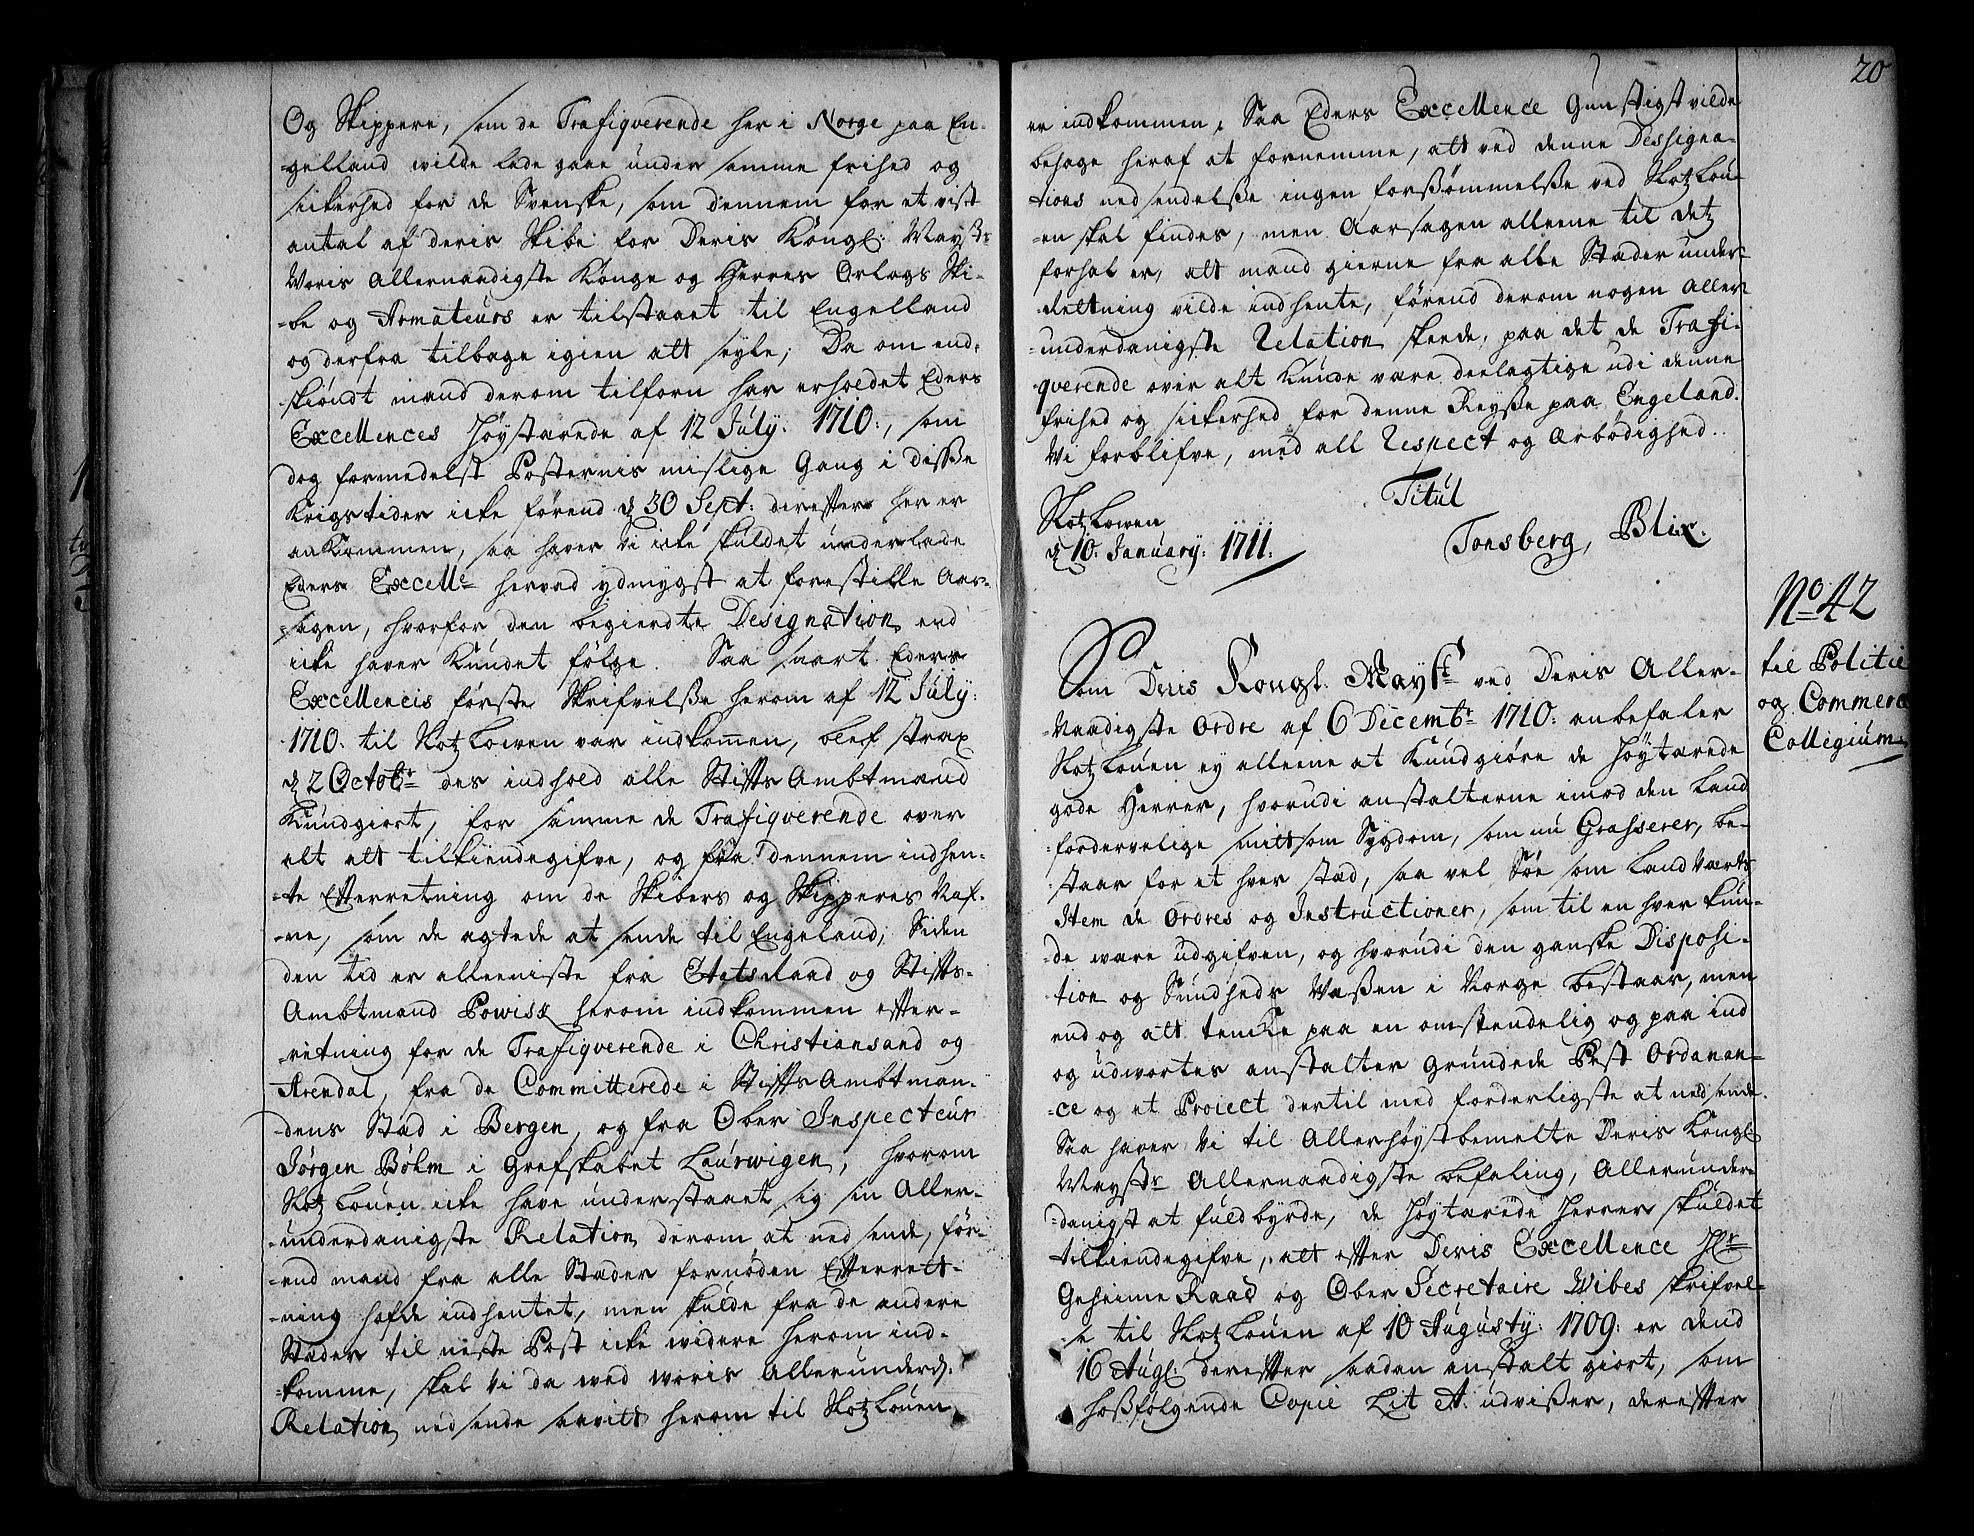 Og Skippere, som de Trafiqverende her i Norge paa En-
-gelland wilde lade gaae under samme frihed og
sickerhed for de Svenske, som dennem for et vist
antal af deris Skibe for Deris Kongl: Mayst:
Woris Allernaadigste Konge og Herres Orlogs Ski-
-be og Armateurs er tilstaaet til Engelland
og derfra tilbage igien att seyle; Da om end-
skiøndt mand derom tilforn har erholdet Eders
Excellences Høystærede af 12 July: 1710:, som
dog formedelst Posternis mislige Gang i disse
Krigstider icke førend d 30 Sept: derefter her er
ankommen, saa haver Vi icke skuldet underlade
Eders Excelle herved ydmygst at forestille Aar-
sagen, hvorfor den begierdte Designation end
icke haver Kundet følge. Saa snart Eders
Excellencis første Skrifvelsse herom af 12 July:
1710. til Slotz Lowen var indkommen, blef strax
d 2 Octobr des indhold alle Stifts Ambtmænd
Kundgiort, for samme de Trafiqverende over
alt att tilkiendegifve, og fra dennem indhen-
-te Efterretning om de Skibers og Skipperes Naf-
-ne, som de agtede at sende til Engeland; Siden
den tid er alleeniste fra EtatsRaad og Stifts-
Ambtmand Powisk herom indkommen efter-
-retning for de Trafiqverende i Christiansand og
Arendal, fra de Committerede i Stifts Ambtman-
-dens Stad i Bergen, og fra Ober Inspecteur
Jørgen Bøhm i Grefskabet Laurwigen, hvorom
Slotz Louen icke have understaaet sig sin Aller-
-underdanigste Relation derom at ned sende, før-
-end mand fra alle Stæder fornøden Efterrett-
-ning hafde indhentet, men skulde fra de andere
Stæder til neste Post icke widere herom ind-
-komme, skal Vi da med woris Allerunderd:
Relation nedsende herom til Slotz Louen
20
er indkommen, Saa Eders Excellence Gunstigst vilde
behage heraf at fornemme, att ved denne Dessigna-
tions nedsendelsse ingen forssømmelsse ved Slotz Lou-
-en skal findes, men Aarsagen alleene til detz
forhal er, att mand gierne fra alle Stæder under-
-retning vilde indhente, førend derom nogen Aller-
-underdanigste Relation skeede, paa det de Trafi-
qverende over alt Kunde være deelagtige udi denne
frihed og sickerhed for denne Reysse paa Engeland.
Vi forblifve, med all Respect og Ærbødighed.
Titul
Slotz Lowen
d 10. January: 1711.
Tonsberg, Blix.
No 42
til Politie
og Commerce
Collegium
Som Deris Kongl. Mayst ved Deris Aller-
-Naadigste Ordre af 6 Decembr 1710: anbefaler
Slotz Louen ey alleene at Kundgiøre de Høytærede
gode Herrer, hvorudi anstalterne imod den Land
fordervelige smittsom Sygdom, som nu Grasserer, be-
-staar for et hver stæd, saa vel Søe som Land Værts
Item de Ordres og Instructioner, som til en hver kun-
-de ware udgifven, og hvorudi den ganske Disposi-
-tion og Sundheds Wæssen i Norge bestaar, men
end og att tencke paa en omstendelig og paa ind
og udwortes anstalter Grundede Pest Ordanan-
-ce og et Proiect dertil med forderligste at nedsende.
Saa haver Vi til Allerhøystbemelte Deris Kongl:
Maysts Allernaadigste befaling, Allerunder-
-danigst at fuldbyrde, de Høytærede Herrer skuldet
tilkiendegifve, att efter Deris Excellence Hr
Geheime Raad og Ober Secretaire Wibes skrifvel-
-se til Slotz Louen af 10 Augusty: 1709: er dend
16 Aug: derefter saadan anstalt giort, som
hosfølgende Copie Lit A. udvisser, derefter